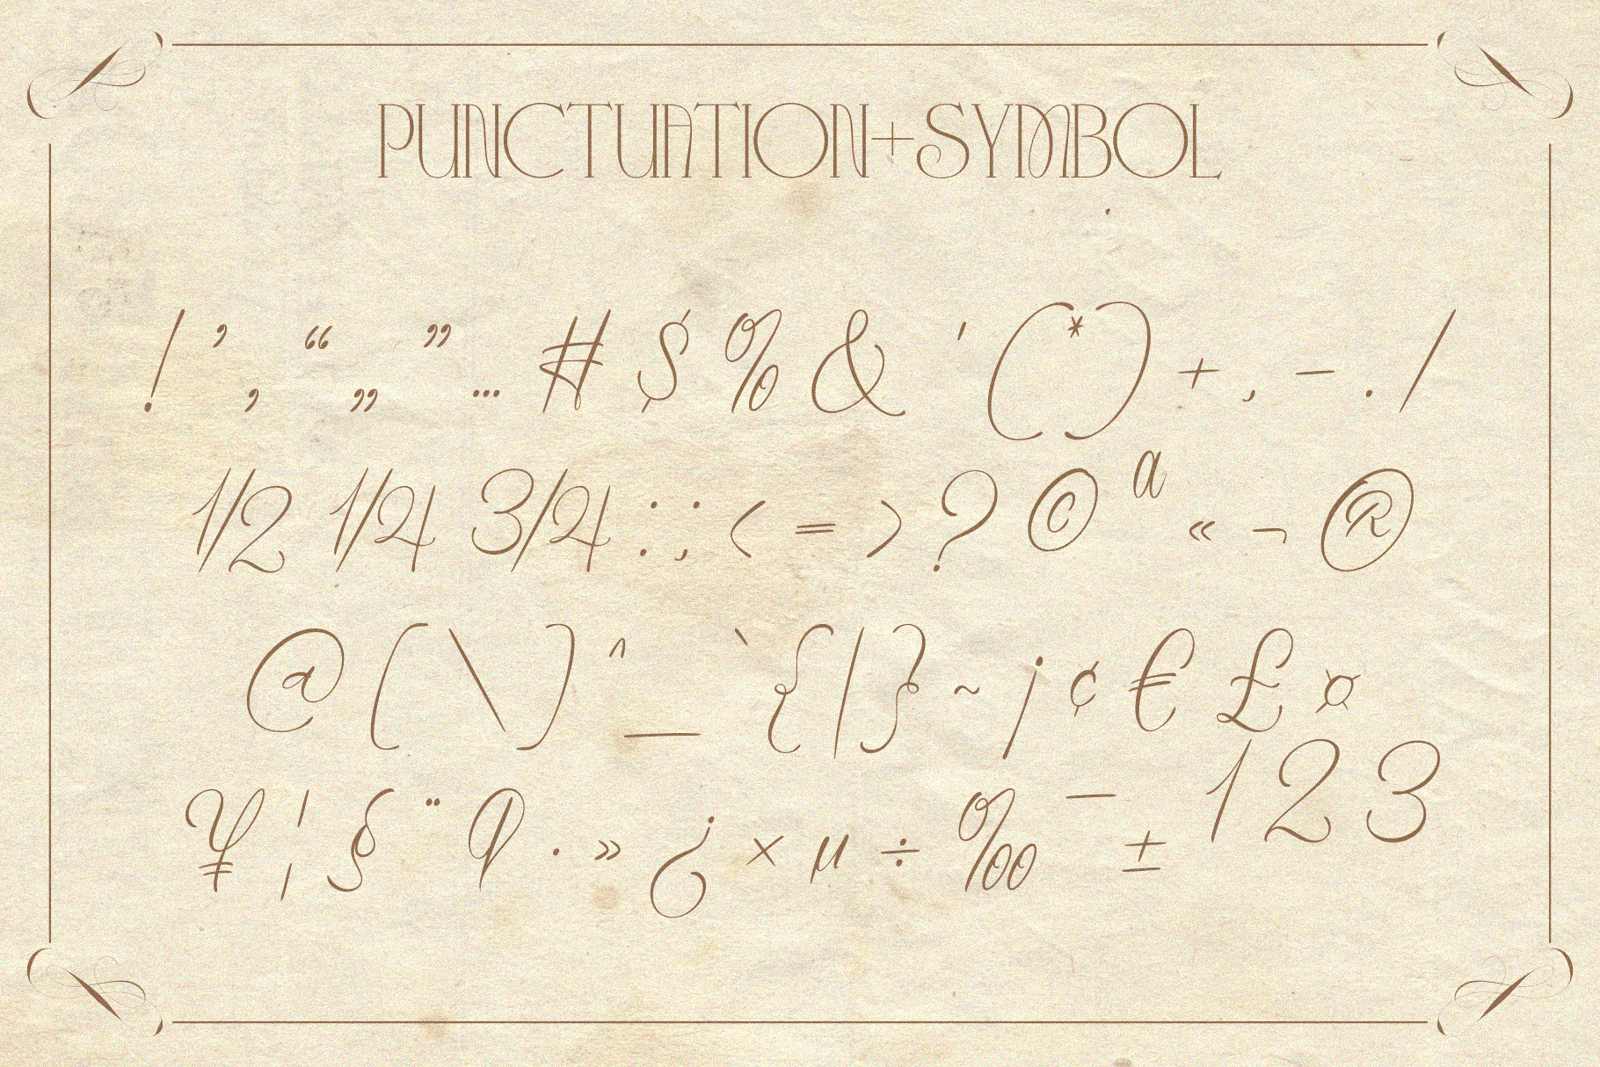 PUNCTUATION+SYMBOL
! ’ ‚ “ „ ” … # $ % & ' ( * ) + , - . /
1/2 1/4 3/4 : ; < = > ? © ª « ¬ ®
@ [ \ ] ^ _ ` { | } ~ ¡ ¢ € £ ¤
¥ ¦ § ¨ ¶ · » ¿ × µ ÷ ‰ ¯ ± ¹ ² ³